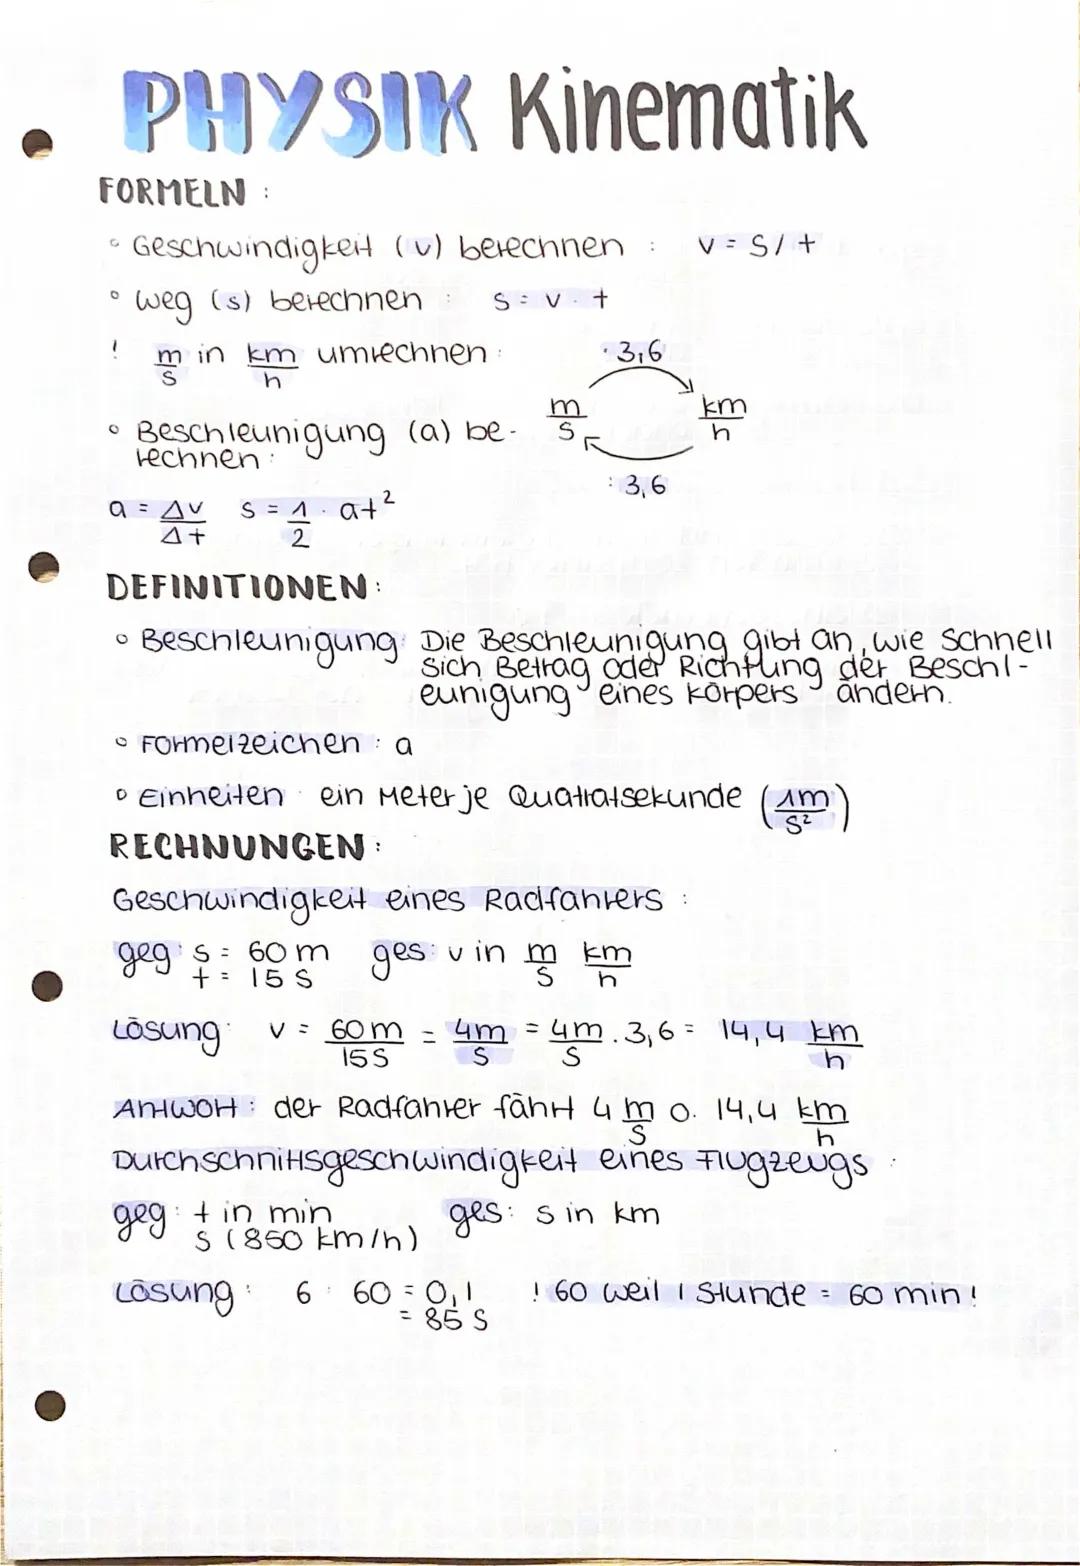 PHYSIK Kinematik
FORMELN :
° Geschwindigkeit (v) berechnen : v = S/t
° Weg (s) berechnen : S = v · t
! m/s in km/h umrechnen : · 3,6
m/s km/h
: 3,6
° Beschleunigung (a) be-
rechnen :
a = Δv/Δt s = 1/2 · at²
DEFINITIONEN :
° Beschleunigung: Die Beschleunigung gibt an, wie Schnell
sich Betrag oder Richtung der Beschl-
eunigung eines Körpers ändern.
° Formelzeichen : a
° Einheiten : ein Meter je Quatratsekunde (1m/s²)
RECHNUNGEN :
Geschwindigkeit eines Radfahrers :
geg: s = 60 m ges: v in m/s km/h
t = 15 s
Lösung: v = 60m/15s = 4m/s = 4m/s · 3,6 = 14,4 km/h
Antwort : der Radfahrer fährt 4 m/s o. 14,4 km/h
Durchschnittsgeschwindigkeit eines Flugzeugs :
geg : t in min ges: s in km
s (850 km/h)
Lösung : 6 : 60 = 0,1 ! 60 weil 1 Stunde = 60 min !
= 85 s